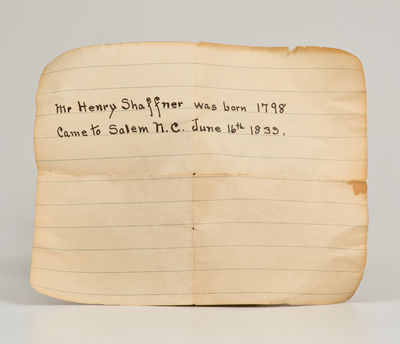 Mr Henry Shaffner was born 1798
Came to Salem N.C. June 16th 1833.